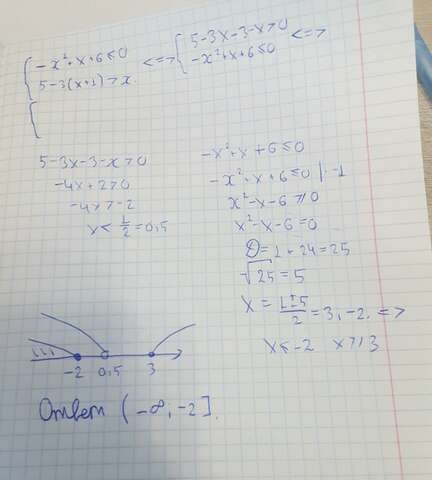 { -x² + x + 6 ≤ 0 <=> { 5-3x-3-x>0 <=>
5-3(x+1)>x. -x²+x+6≤0
5-3x-3-x>0
-4x+2>0
-4x>-2
x < 1/2 = 0,5
-x²+x+6≤0
-x²+x+6≤0 | ·-1
x²-x-6≥0
x²-x-6=0
D=1+24=25
√25=5
x = (1±5)/2 = 3, -2. =>
x≤-2 x≥3
-2 0,5 3
Ответ (-∞, -2].